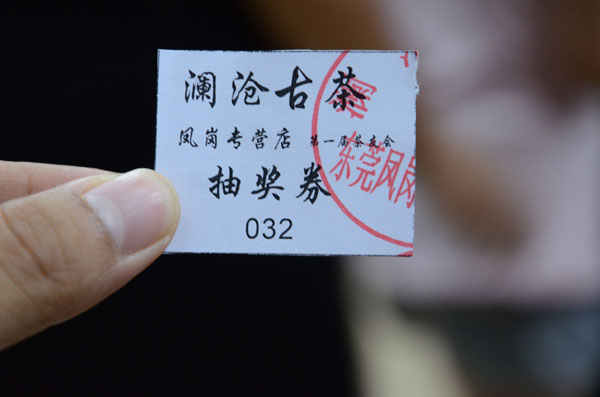 澜沧古茶
凤岗专营店 第一届茶友会
抽奖券
032
东莞凤岗